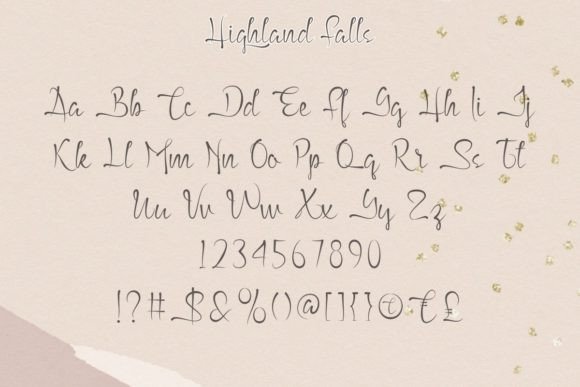 Highland Falls
Aa Bb Cc Dd Ee Ff Gg Hh Ii Jj
Kk Ll Mm Nn Oo Pp Qq Rr Ss Tt
Uu Vv Ww Xx Yy Zz
1234567890
!?#$&%()@[]{}€£